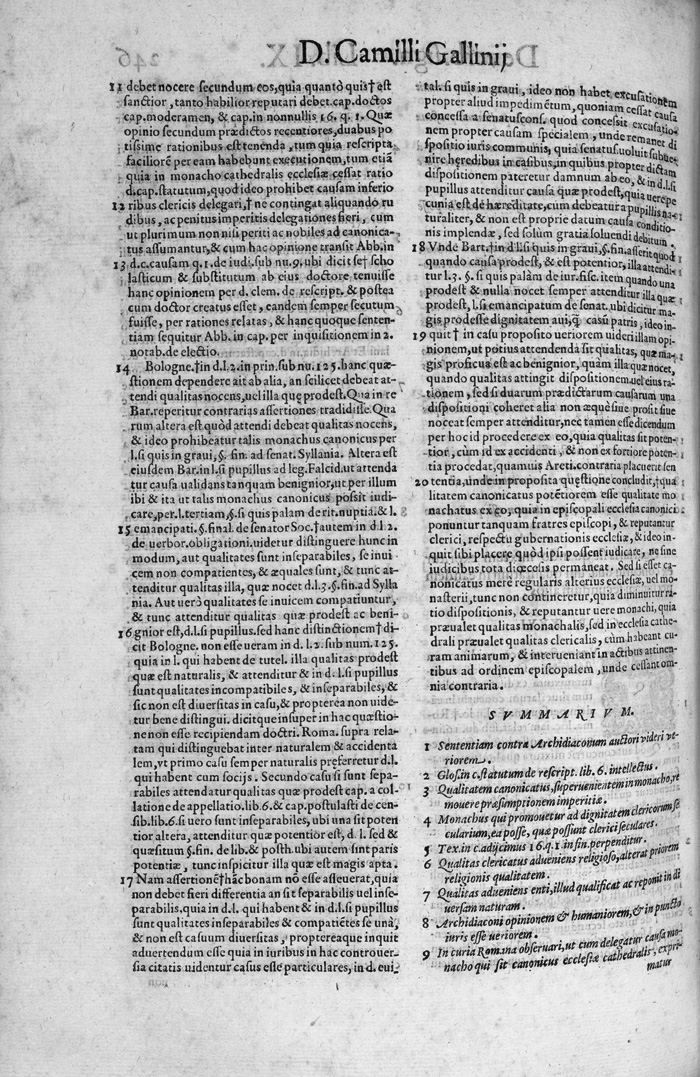 D. Camilli Gallinij
11 debet nocere secundum eos, quia quantò quis † est
sanctior, tanto habilior reputari debet. cap. doctos
cap. moderamen, & cap. in nonnullis 16. q. 1. Quæ
opinio secundum prædictos recentiores, duabus po
tissime rationibus est tenenda, tum quia rescripta
faciliorē per eam habebunt executionem, tum etiā
quia in monacho cathedralis ecclesiæ cessat ratio
d. cap. statutum, quod ideo prohibet causam inferio
12 ribus clericis delegari, † ne contingat aliquando ru
dibus, ac penitus imperitis delegationes fieri, cum
ut plurimum non nisi periti ac nobiles ad canonica-
tus assumantur, & cum hac opinione transit Abb. in
13 d. c. causam q. 1. de iudi. sub nu. 9. ubi dicit se † scho
lasticum & substitutum ab eius doctore tenuisse
hanc opinionem per d. clem. de rescript. & postea
cum doctor creatus esset, eandem semper secutum
fuisse, per rationes relatas, & hanc quoque senten-
tiam sequitur Abb. in cap. per inquisitionem in 2.
notab. de electio.
14 Bologne. † in d. l. 2. in prin. sub nu. 125. hanc quæ-
stionem dependere ait ab alia, an scilicet debeat at-
tendi qualitas nocens, uel illa que prodest. Qua in re
Bar. reperitur contrarias assertiones tradidisse. Qua
rum altera est quòd attendi debeat qualitas nocens,
& ideo prohibeatur talis monachus canonicus per
l. si quis in graui, §. fin. ad senat. Syllania. Altera est
eiusdem Bar. in l. si pupillus ad leg. Falcid. ut attenda
tur causa ualidans tanquam benignior, ut per illum
ibi & ita ut talis monachus canonicus possit iudi-
care, per. l. tertiam, §. si quis palam de rit. nuptia. & l.
15 emancipati. §. final. de senator Soc. † autem in d. l. 2.
de uerbor. obligationi. uidetur distinguere hunc in
modum, aut qualitates sunt inseparabiles, se inui-
cem non compatientes, & æquales sunt, & tunc at-
tenditur qualitas illa, quæ nocet d. l. 3. §. fin. ad Sylla
nia. Aut uerò qualitates se inuicem compatiuntur,
& tunc attenditur qualitas quæ prodest ac beni-
16 gnior est, d. l. si pupillus. sed hanc distinctionem † di-
cit Bologne. non esse ueram in d. l. 2. sub num. 125.
quia in l. qui habent de tutel. illa qualitas prodest
quæ est naturalis, & attenditur & in d. l. si pupillus
sunt qualitates incompatibiles, & inseparabiles, &
sic non est diuersitas in casu, & propterea non uide-
tur bene distingui. dicitque insuper in hac quæstio-
ne non esse recipiendam doctri. Roma. supra rela-
tam qui distinguebat inter naturalem & accidenta
lem, vt primo casu semper naturalis preferretur d. l.
qui habent cum socijs. Secundo casu si sunt sepa-
rabiles attendatur qualitas quæ prodest cap. a col-
latione de appellatio. lib. 6. & cap. postulasti de cen-
sib. lib. 6. si uero sunt inseparabiles, ubi una sit poten
tior altera, attenditur quæ potentior est, d. l. sed &
quæsitum §. fin. de lib. & posth. ubi autem sunt paris
potentiæ, tunc inspicitur illa quæ est magis apta.
17 Nam assertionē † hāc bonam nō esse asseuerat, quia
non debet fieri differentia an sit separabilis uel inse-
parabilis, quia in d. l. qui habent & in d. l. si pupillus
sunt qualitates inseparabiles & compatiētes se unà,
& non est casuum diuersitas, proptereaque inquit
aduertendum esse quia in iuribus in hac controuer-
sia citatis uidentur casus esse particulares, in d. eui,
tal. si quis in graui, ideo non habet excusationem
propter aliud impedimētum, quoniam cessat causa
concessa a senatuscons. quod concessit excusatio-
nem propter causam specialem, unde remanet di
spositio iuris communis, quia senatus uoluit subue-
nire heredibus in casibus, in quibus propter dictam
dispositionem pateretur damnum ab eo, & in d. l. si
pupillus attenditur causa quæ prodest, quia uere pe
cunia est de hæreditate, cum debeatur a pupillis na-
turaliter, & non est proprie datum causa conditio-
nis implendæ, sed solùm gratia soluendi debitum.
18 Vnde Bart. † in d. l. si quis in graui, §. fin. asserit quod
quando causa prodest, & est potentior, illa attendi-
tur l. 3. §. si quis palàm de iur. fisc. item quando una
prodest & nulla nocet semper attenditur illa quæ
prodest, l. si emancipatum de senat. ubi dicitur ma-
gis prodesse dignitatem aui, q̃ casū patris, ideo in-
19 quit † in casu proposito ueriorem uideri illam opi-
nionem, ut potius attendenda sit qualitas, quæ ma-
gis proficua est ac benignior, quàm illa quæ nocet,
quando qualitas attingit dispositionem uel eius ra-
tionem, sed si duarum prædictarum causarum una
dispositioni coheret alia non æque siue prosit siue
noceat semper attenditur, nec tamen esse dicendum
per hoc id procedere ex eo, quia qualitas sit poten-
tior, cum id ex accidenti, & non ex fortiore poten-
tia procedat, quamuis Areti. contraria placuerit sen
20 tentia, unde in proposita questione concludit, † qua
litatem canonicatus potētiorem esse qualitate mo
nachatus ex quo, quia in episcopali ecclesia canonici
ponuntur tanquam fratres episcopi, & reputantur
clerici, respectu gubernationis ecclesiæ, & ideo in-
quit sibi placere quòd ipsi possent iudicare, ne sine
iudicibus tota diœcesis permaneat. Sed si esset ca-
nonicatus mere regularis alterius ecclesiæ, uel mo-
nasterij, tunc non contineretur, quia diminuitur ra-
tio dispositionis, & reputantur uere monachi, quia
præualet qualitas monachalis, sed in ecclesia cathe-
drali præualet qualitas clericalis, cùm habeant cu-
ram animarum, & interueniant in actibus attinen-
tibus ad ordinem episcopalem, unde cessant om-
nia contraria.
SVMMARIVM.
1 Sententiam contra Archidiaconum auctori videri ve-
riorem.
2 Glos. in c. statutum de rescript. lib. 6. intellectus.
3 Qualitatem canonicatus, superuenientem in monacho, re
mouere præsumptionem imperitiæ.
4 Monachus qui promouetur ad dignitatem clericorum se
cularium, ea posse, quæ possunt clerici seculares.
5 Tex. in c. adijcimus 16. q. 1. in fin. perpenditur.
6 Qualitas clericatus adueniens religioso, alterat priorem
religionis qualitatem.
7 Qualitas adueniens enti, illud qualificat ac reponit in di
uersam naturam.
8 Archidiaconi opinionem & humaniorem, & in puncto
iuris esse ueriorem.
9 In curia Romana obseruari, ut cum delegatur causa mo-
nacho qui sit canonicus ecclesiæ cathedralis, expri-
matur